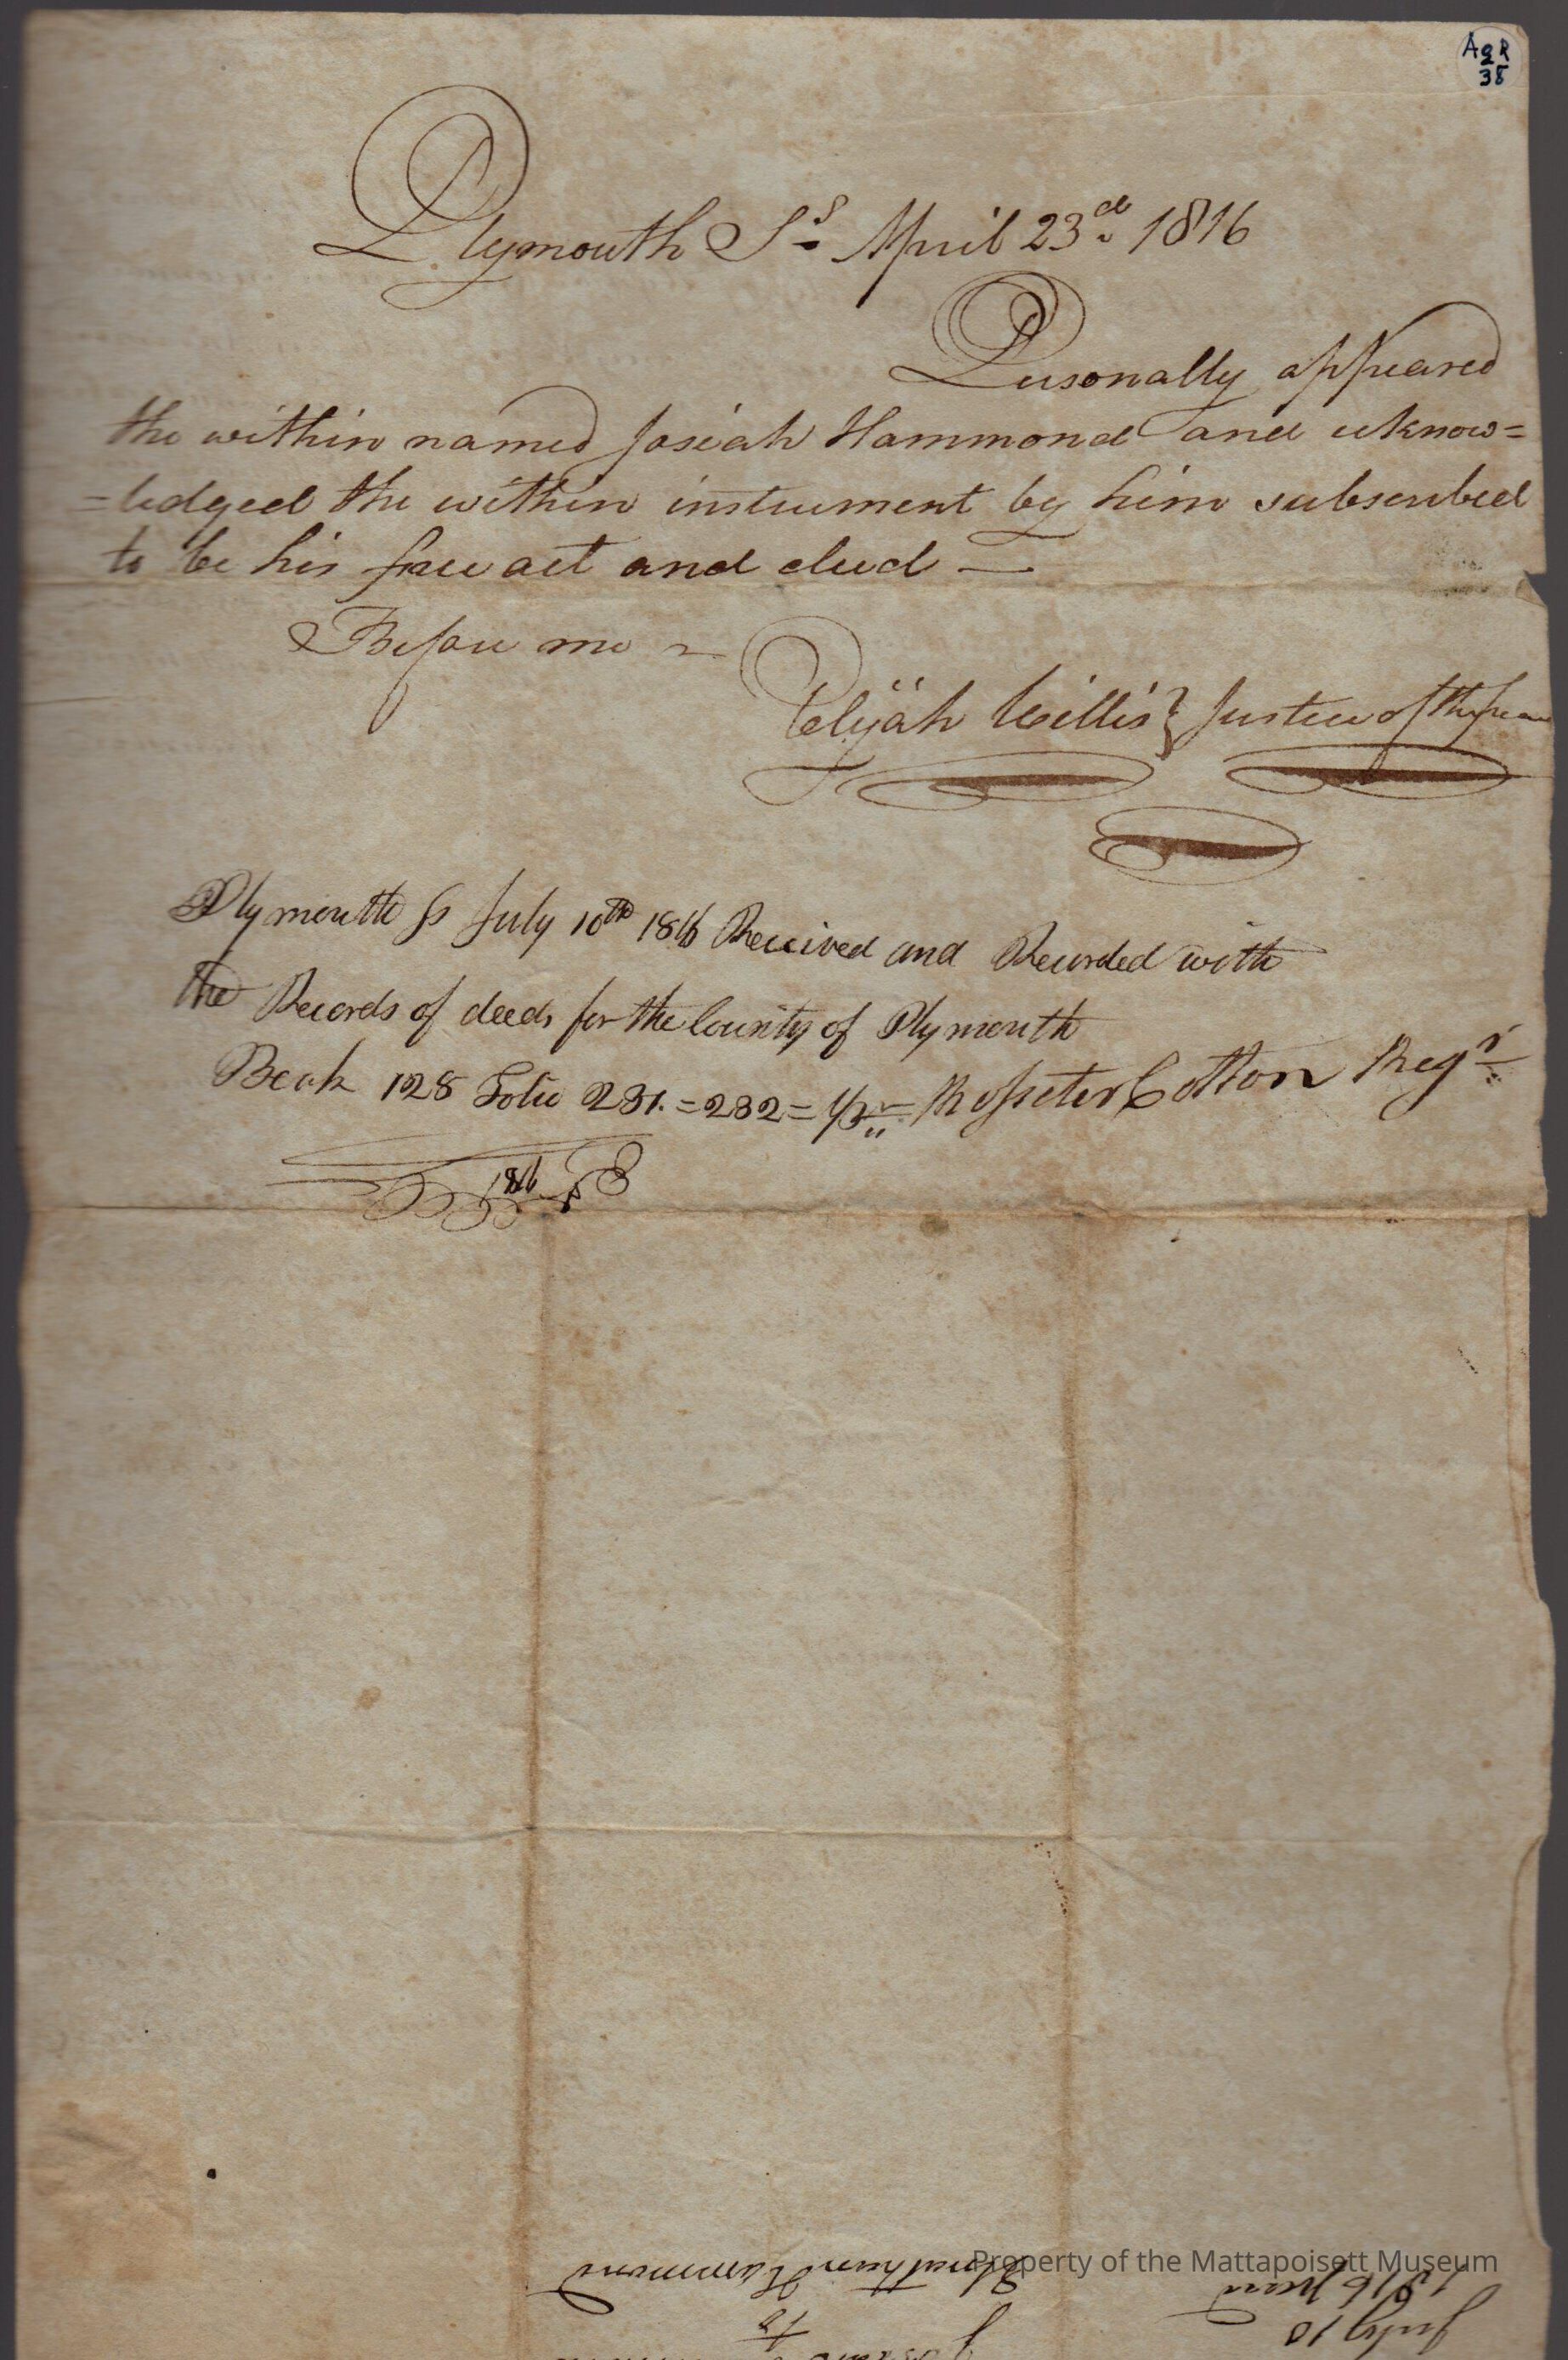 AgR
38
Plymouth Ss April 23d 1816
Personally appeared
the within named Josiah Hammond and acknow=
=ledged the within instrument by him subscribed
to be his free act and deed —
Before me
Elijah Willis } Justice of the peace
Plymouth ss July 10th 1816 Received and Recorded with
the Records of deeds for the County of Plymouth
Book 128 Folio 281.=282= pr Rosseter Cotton Regr
1816
Property of the Mattapoisett Museum
July 10
1816
Josiah
to
Elnathan Hammond